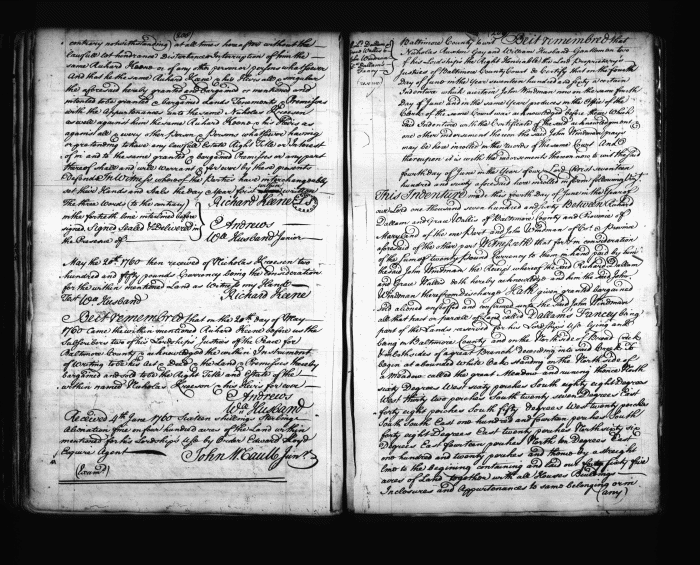 (200)
contrary notwithstanding) at all times hereafter without the
lawful Let hindrance Disturbance Interruption of him the
same Richard Keene or of any other person or persons whatsoever
And that he the same Richard Keene & his Heirs all & singular
the aforesaid hereby granted and bargained or mentioned and
intended to be granted & bargained Land Tenements & Premisses
with the Appurtenances unto the same Nicholas Kreesen
as well against him the same Richard Keene & his Heirs as
against all & every other Person & Persons whatsoever having
or pretending to have any lawful Estate Right Title or Interest
of in and to the same granted & bargained Premisses or any part
thereof shall and will warrant & for ever by these presents
Defend In Witness whereof the Parties have interchangeably
set their Hands and Seals the day & Year first within written
The three Words (to the contrary)
in the fortieth line interlined before
signed Signed Sealed & Delivered in
the Presence of
Richard Keene
E Andrews
Wm Husband Junior
May the 20th 1760 then received of Nicholas Kreesen two
hundred and fifty pounds Currency being the Consideration
for the within mentioned Land as Witness my Hand
Test Wm Husband
Richard Keene
Be it remembred that on the 20th day of May
1760 Came the within mentioned Richard Keene before us the
Subscribers two of his Lordships Justices of the Peace for
Baltimore County & acknowledged the within Instrument
of Writing to be his Act & Deed & the Land & Premisses thereby
bargained and sold to be the Right Title and Estate of the
within named Nicholas Kreesen & his Heirs for ever
E Andrews
Wm Husband
Received 4th June 1760 Sixteen Shillings Sterling
Alienation fine on four hundred acres of the Land within
mentioned for his Lordships Use by Order Edward Lloyd
Esquire Agent
John McCaulb Junr
(Exam'd)
Baltimore County Be it remembred that
Nicholas Ruxton Gay and William Husband Gentlemen two
of his Lordships the Right Honorable the Lord Proprietary's
Justices of Baltimore County Court do Certify that on the fourth
day of June in the Year seventeen hundred and sixty a certain
Indenture which a certain John Wiedman on the same fourth
day of June and in the same Year produces in the Office of the
Clerk of the same Court was acknowledged before them, Which
said Indenture with the Certificate of the said acknowledgment &
one other indorsment thereon the said John Wiedman prays
may be here inrolled in the Records of the same Court And
thereupon it is with the indorsments thereon now to wit the said
fourth day of June in the Year of our Lord Christ seventeen
hundred and sixty aforesaid here inrolled in form following
This Indenture made this fourth day of June in the Year of
our Lord one thousand seven hundred and sixty Between Richard
Dallam and Grace Wallis of Baltimore County and Province of
Maryland of the one Part and John Wiedman of Ct & Province
aforesaid of the other part Witnesseth that for & in consideration
of the sum of twenty pound Currency to them in hand paid by him
the said John Wiedman the Receipt whereof the said Richard Dallam
and Grace Wallis doth hereby acknowledge and him the said John
Wiedman therefrom discharge Hath given granted bargained
sold aliened enfeoffed and confirmed unto the said John Wiedman
all that tract or parcel of Land called Dallam's Fancy being
part of the Lands reserved for his Lordships Use lying and
being in Baltimore County and on the North side of Broad Creek
on both sides of a great Branch Descending into said Creek
begin at a bounded white Oak standing on the North side of
a Meadow called the great Meadow and running thence North
sixty degrees West sixty perches South eighty eight Degrees
West thirty two perches South twenty seven Degrees East
forty eight perches South fifty Degrees West twenty perches
South South East one hundred and fourteen perches South
forty eight Degrees East twenty perches North sixty six
Degrees East fourteen perches North ten Degrees East
one hundred and twenty perches and thence by a straight
line to the beginning containing and laid out for sixty five
acres of Land together with all Houses Buildings
Inclosures and Appurtenances to same belonging or in
(any)